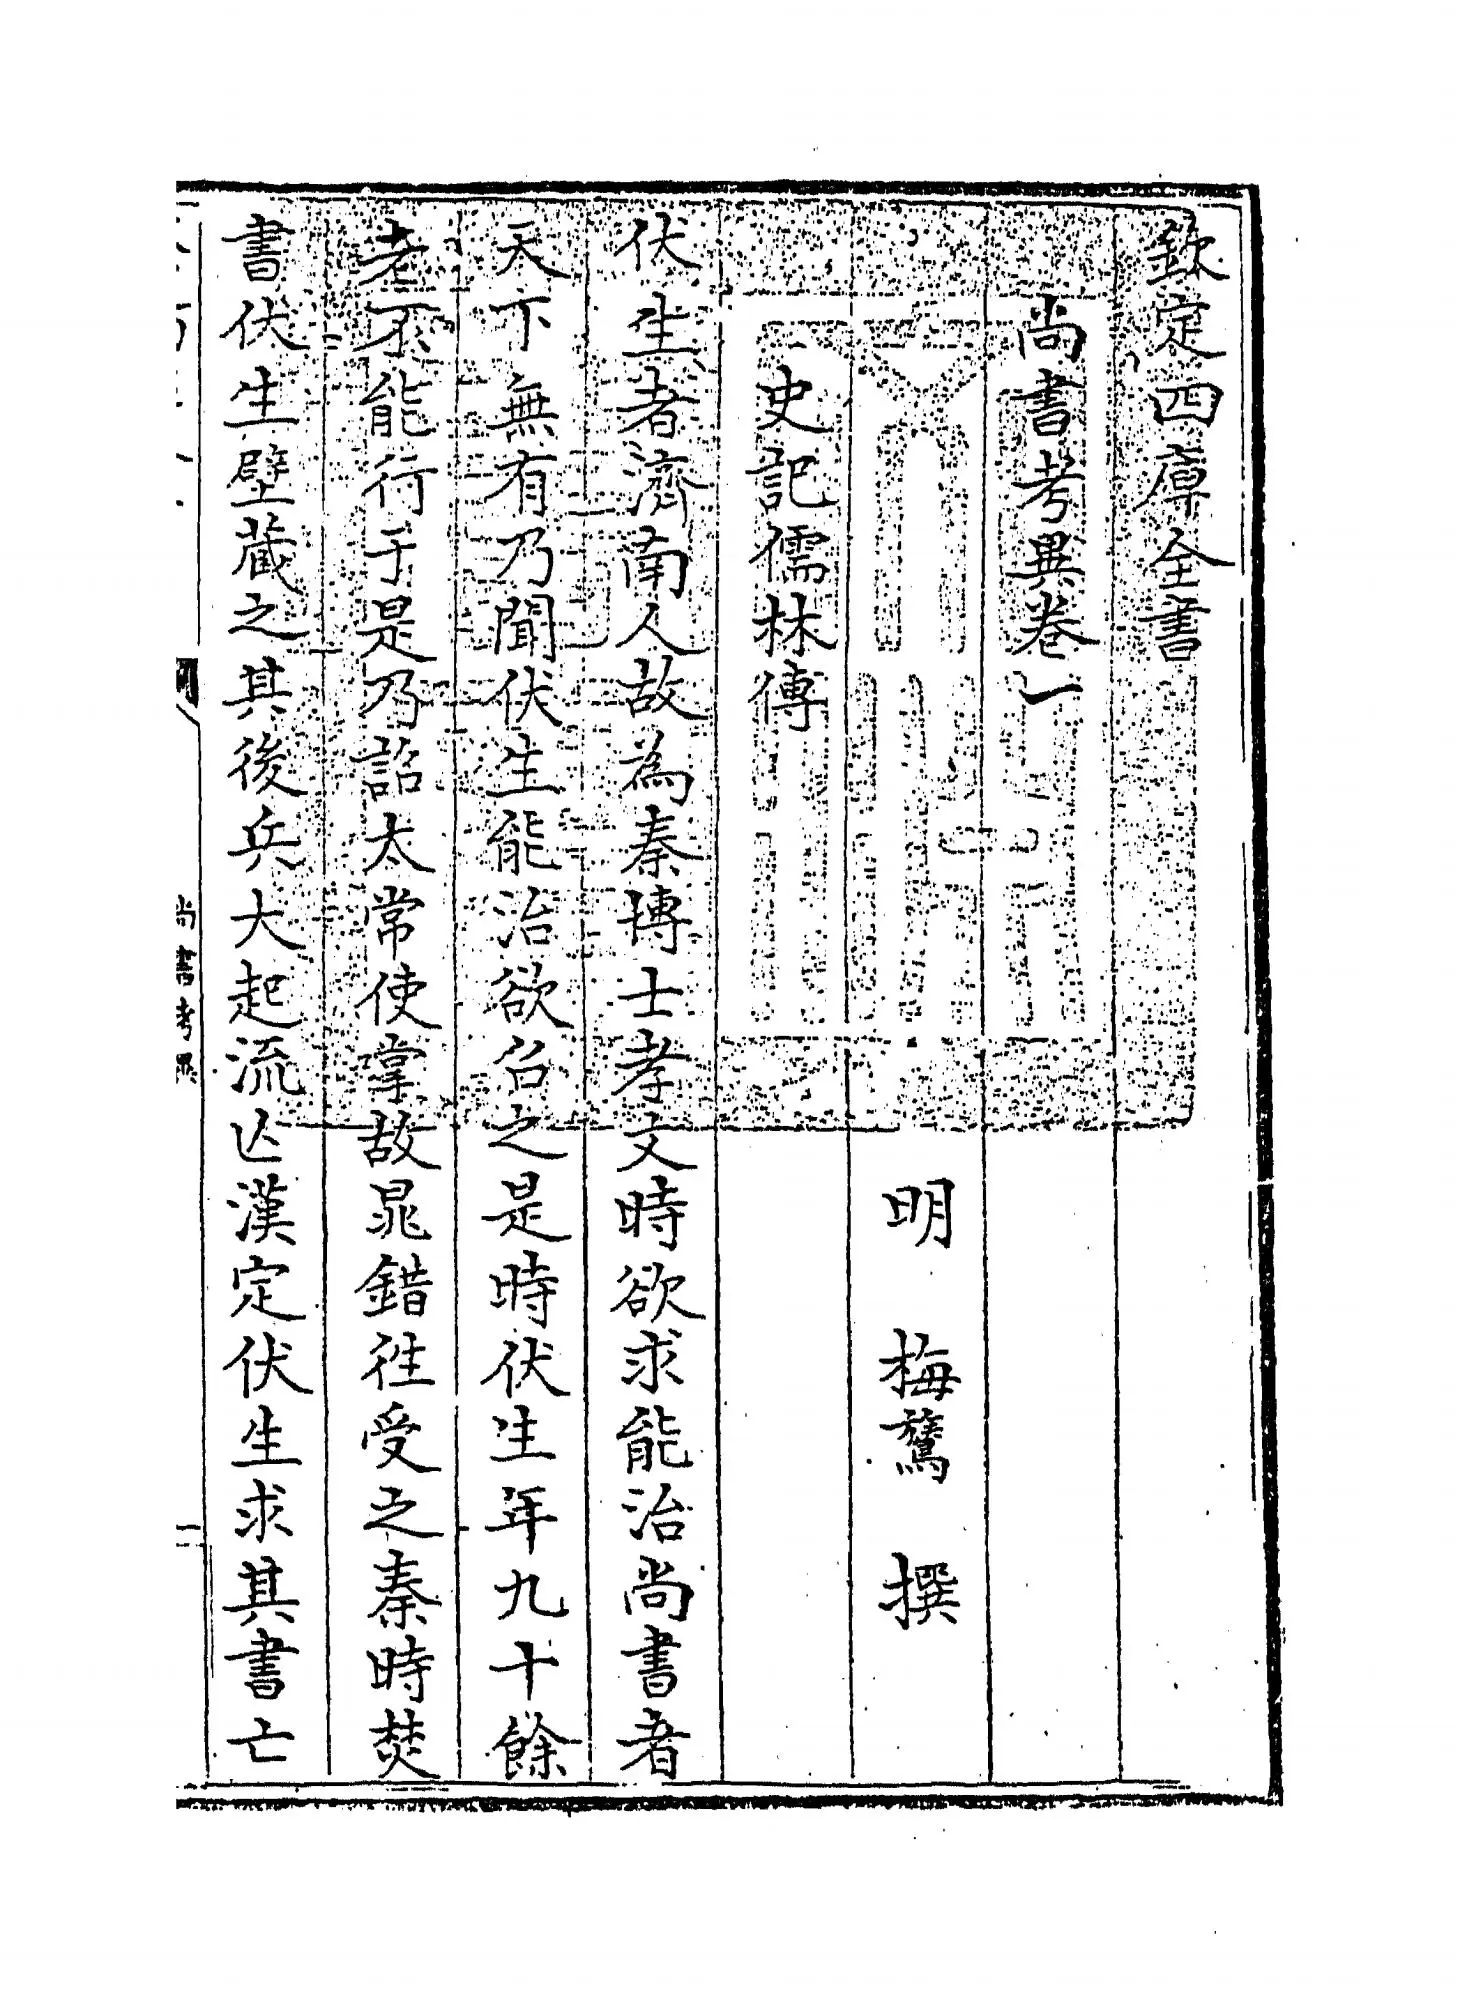 欽定四庫全書
尚書考異卷一
明 梅鷟 撰
史記儒林傳
伏生者濟南人故為秦博士孝文時欲求能治尚書者
天下無有乃聞伏生能治欲召之是時伏生年九十餘
老不能行于是乃詔太常使掌故晁錯往受之秦時焚
書伏生壁藏之其後兵大起流亡漢定伏生求其書亡
尚書考異